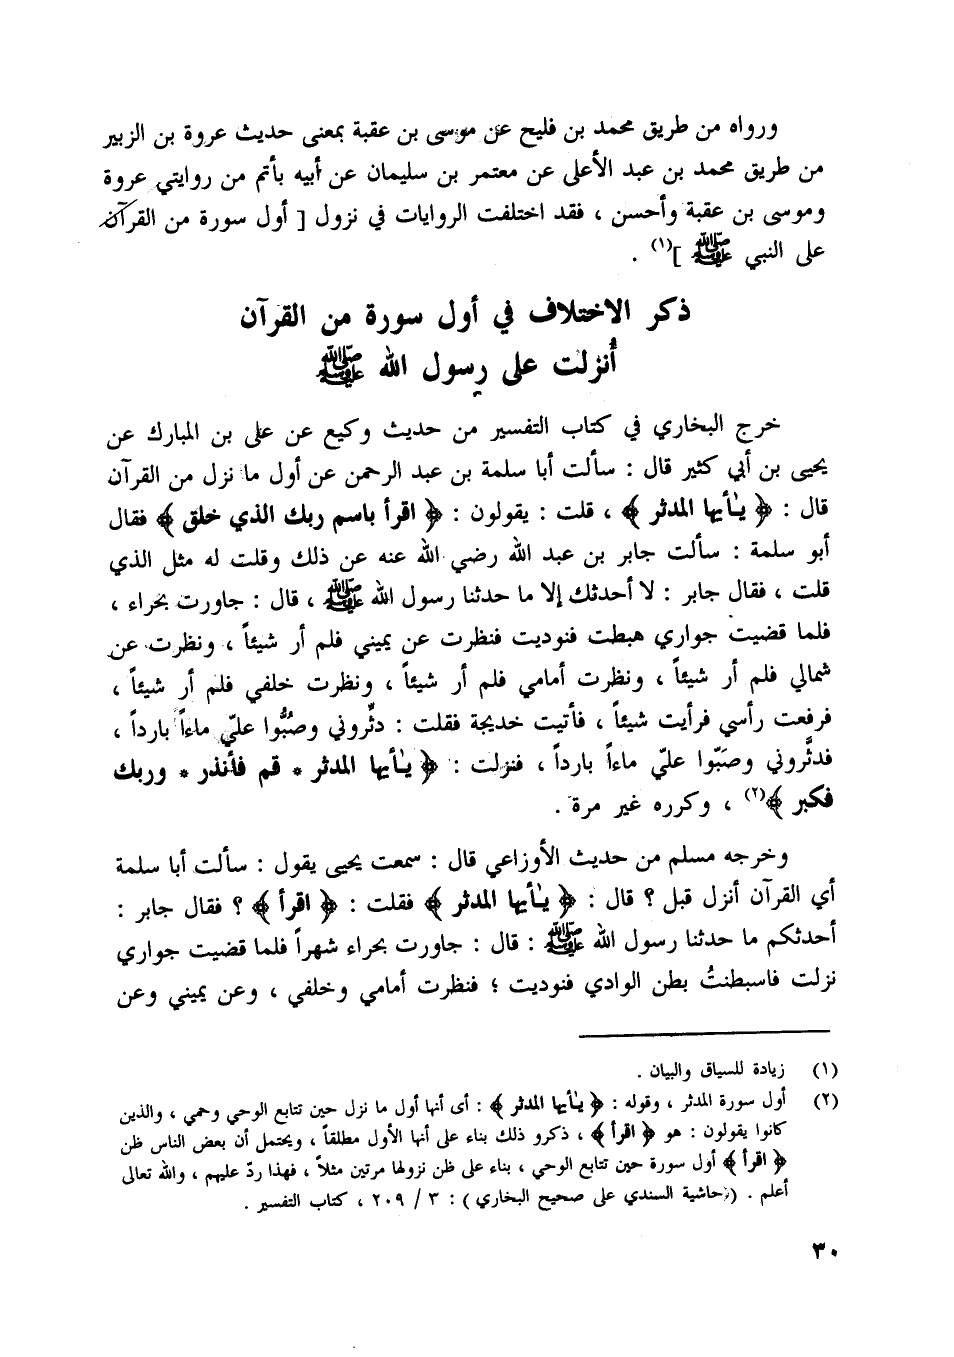 ورواه من طريق محمد بن فليح عن موسى بن عقبة بمعنى حديث عروة بن الزبير
من طريق محمد بن عبد الأعلى عن معتمر بن سليمان عن أبيه بأتم من روايتي عروة
وموسى بن عقبة وأحسن ، فقد اختلفت الروايات في نزول [ أول سورة من القرآن
على النبي ﷺ ](١) .
ذكر الاختلاف في أول سورة من القرآن
أُنزلت على رسول الله ﷺ
خرج البخاري في كتاب التفسير من حديث وكيع عن على بن المبارك عن
يحيى بن أبي كثير قال : سألت أبا سلمة بن عبد الرحمن عن أول ما نزل من القرآن
قال : ﴿ يـٰأيها المدثر ﴾ ، قلت : يقولون : ﴿ اقرأ باسم ربك الذي خلق ﴾ فقال
أبو سلمة : سألت جابر بن عبد الله رضي الله عنه عن ذلك وقلت له مثل الذي
قلت ، فقال جابر : لا أحدثك إلا ما حدثنا رسول الله ﷺ ، قال : جاورت بحراء ،
فلما قضيت جواري هبطت فنوديت فنظرت عن يميني فلم أر شيئاً ، ونظرت عن
شمالي فلم أر شيئاً ، ونظرت أمامي فلم أر شيئاً ، ونظرت خلفي فلم أر شيئاً ،
فرفعت رأسي فرأيت شيئاً ، فأتيت خديجة فقلت : دثِّروني وصُبُّوا عليّ ماءاً بارداً ،
فدثَّروني وصَبّوا عليّ ماءاً بارداً ، فنزلت : ﴿ يـٰأيها المدثر * قم فأنذر * وربك
فكبر ﴾(٢) ، وكرره غير مرة .
وخرجه مسلم من حديث الأوزاعي قال : سمعت يحيى يقول : سألت أبا سلمة
أي القرآن أنزل قبل ؟ قال : ﴿ يـٰأيها المدثر ﴾ فقلت : ﴿ اقرأ ﴾ ؟ فقال جابر :
أحدثكم ما حدثنا رسول الله ﷺ : قال : جاورت بحراء شهراً فلما قضيت جواري
نزلت فاسبطنتُ بطن الوادي فنوديت ؛ فنظرت أمامي وخلفي ، وعن يميني وعن
(١) زيادة للسياق والبيان .
(٢) أول سورة المدثر ، وقوله : ﴿ يـٰأيها المدثر ﴾ : أى أنها أول ما نزل حين تتابع الوحي وحمي ، والذين
كانوا يقولون : هو ﴿ اقرأ ﴾ ، ذكرو ذلك بناء على أنها الأول مطلقاً ، ويحتمل أن بعض الناس ظن
﴿ اقرأ ﴾ أول سورة حين تتابع الوحي ، بناء على ظن نزولها مرتين مثلاً ، فهذا ردّ عليهم ، والله تعالى
أعلم . ( حاشية السندي على صحيح البخاري ) : ٣ / ٢٠٩ ، كتاب التفسير .
٣٠